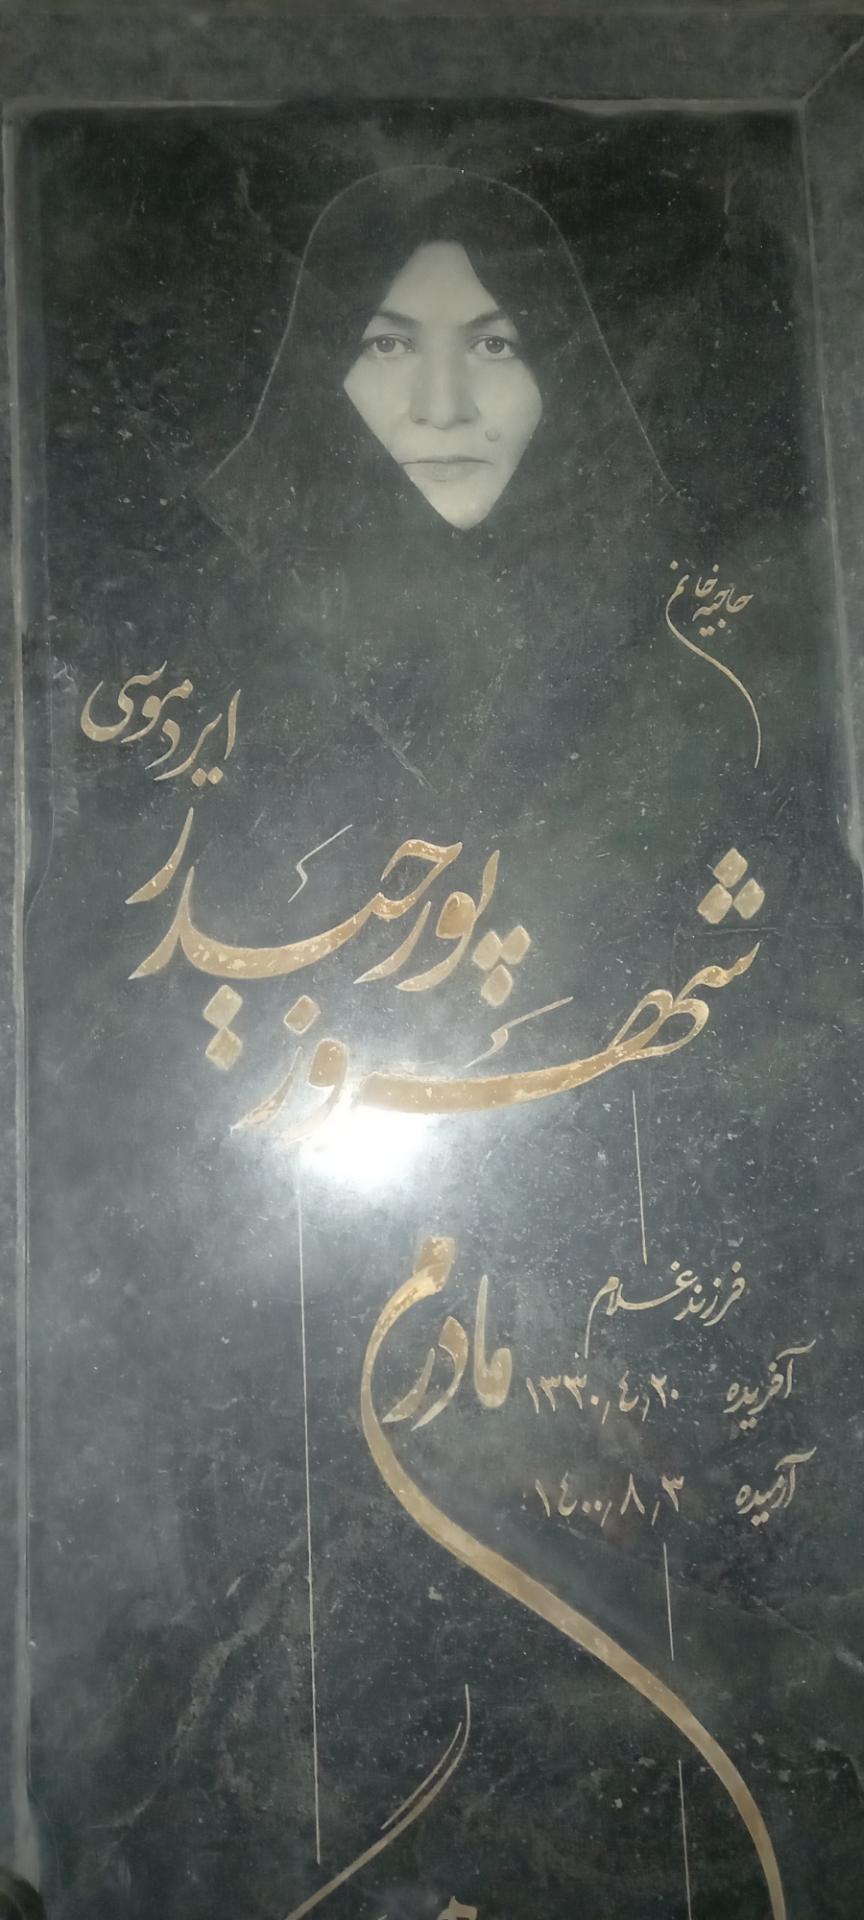 حاجیه خانم
شهروز پورحیدر
ایردموسی
مادرم
فرزند غلام
آفریده ۱۳۳۰٫۴٫۲۰
آرمیده ۱۴۰۰٫۸٫۳